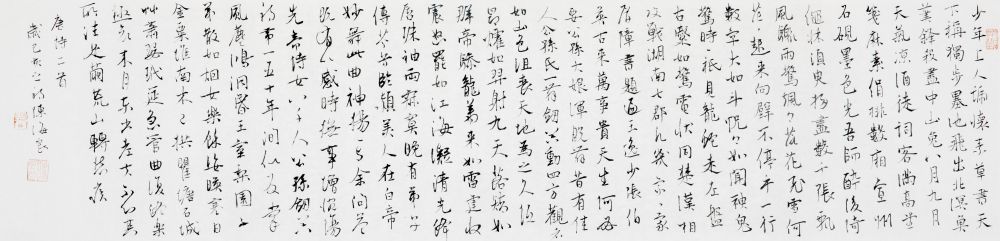 少年上人號懷素草書天
下稱獨步墨池飛出北溟魚
筆鋒殺盡中山兔八月九月
天氣涼酒徒詞客滿高堂
箋麻素絹排數廂宣州
石硯墨色光吾師醉後倚
繩床須臾掃盡數千張飄
風驟雨驚颯颯落花飛雪何
茫茫起來向壁不停手一行
數字大如斗怳怳如聞神鬼
驚時時祇見龍蛇走左盤
右蹙如驚電狀同楚漢相
攻戰湖南七郡凡幾家家家
屏障書題遍王逸少張伯
英古來萬事貴天生何必
要公孫大娘渾脫舞昔有佳
人公孫氏一舞劍器動四方觀者
如山色沮喪天地為之久低
昂㸌如羿射九日落矯如
群帝驂龍翔來如雷霆收
震怒罷如江海凝清光絳
唇珠袖兩寂寞晚有弟子
傳芬芳臨潁美人在白帝
妙舞此曲神揚揚與余問答
既有以感時撫事增惋傷
先帝侍女八千人公孫劍器
初第一五十年間似反掌
風塵澒洞昏王室梨園子
弟散如煙女樂餘姿映寒日
金粟堆南木已拱瞿塘石城
草蕭瑟玳筵急管曲復終樂
極哀來月東出老夫不知其
所往足繭荒山轉愁疾
唐詩二首
歲己亥之陳海良